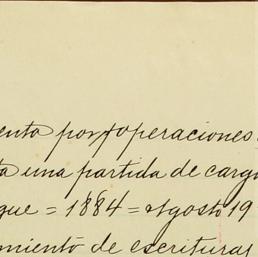 ento por operaciones
ta una partida de carg
que = 1884 = Agosto 19
miento de escrituras